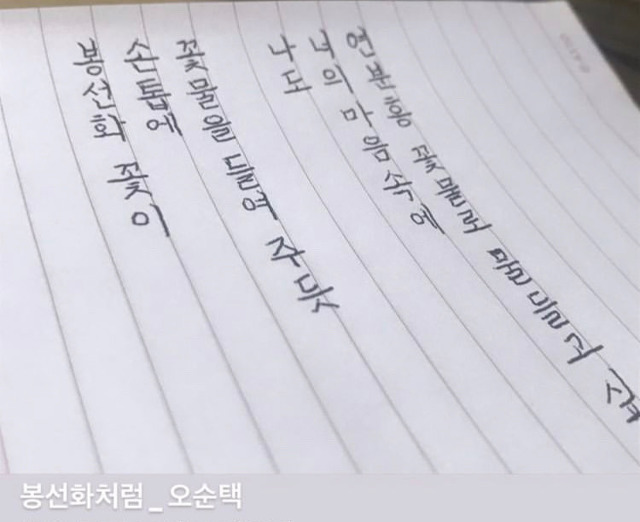 봉선화 꽃이
손톱에
꽃물을 들여 주듯
나도
너의 마음 속에
연분홍 꽃물로
봉선화처럼_오순택